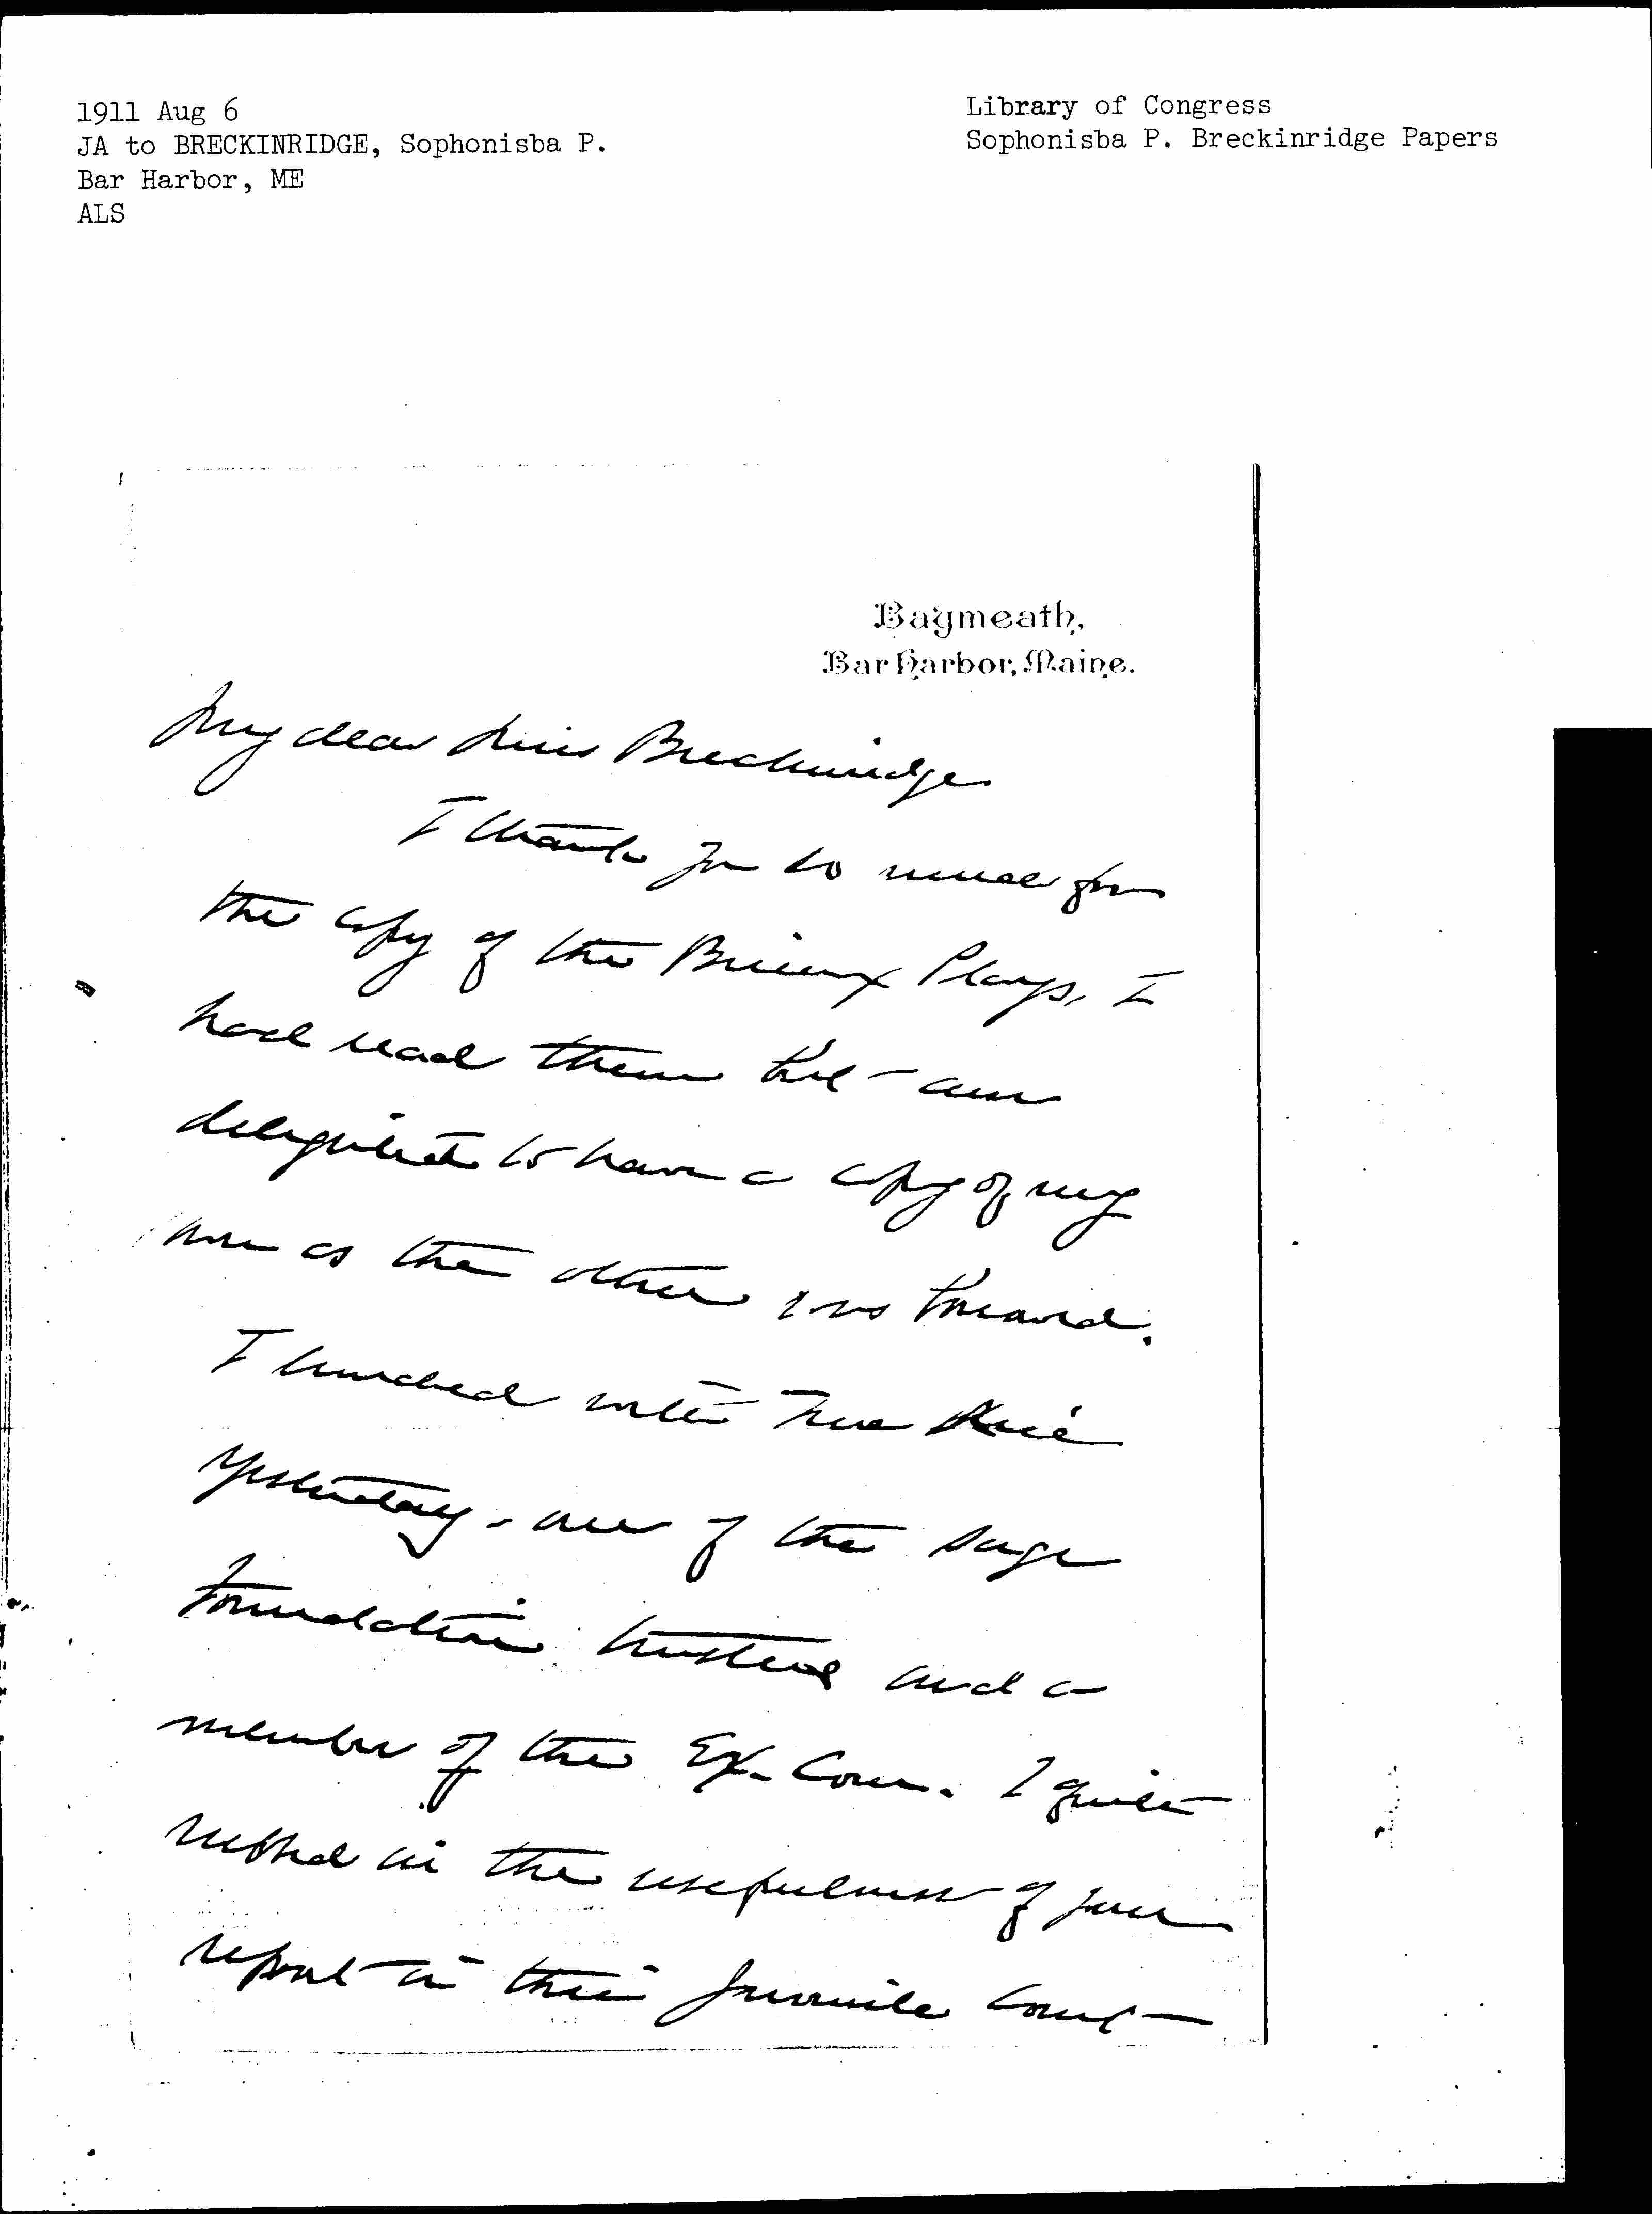 1911 Aug 6
JA to BRECKINRIDGE, Sophonisba P.
Bar Harbor, ME
ALS
Library of Congress
Sophonisba P. Breckinridge Papers
Baymeath,
Bar Harbor, Maine.
My dear Miss Breckinridge
I thank you so much for
the copy of the Brieux Plays, I
had read them but am
delighted to have a copy of my
own as the other was borrowed.
I lunched with Mrs Rice
yesterday, one of the Sage
Foundation trustees and a
member of the Ex. Com. I quite
in the usefulness of your
report in their Juvenile Court